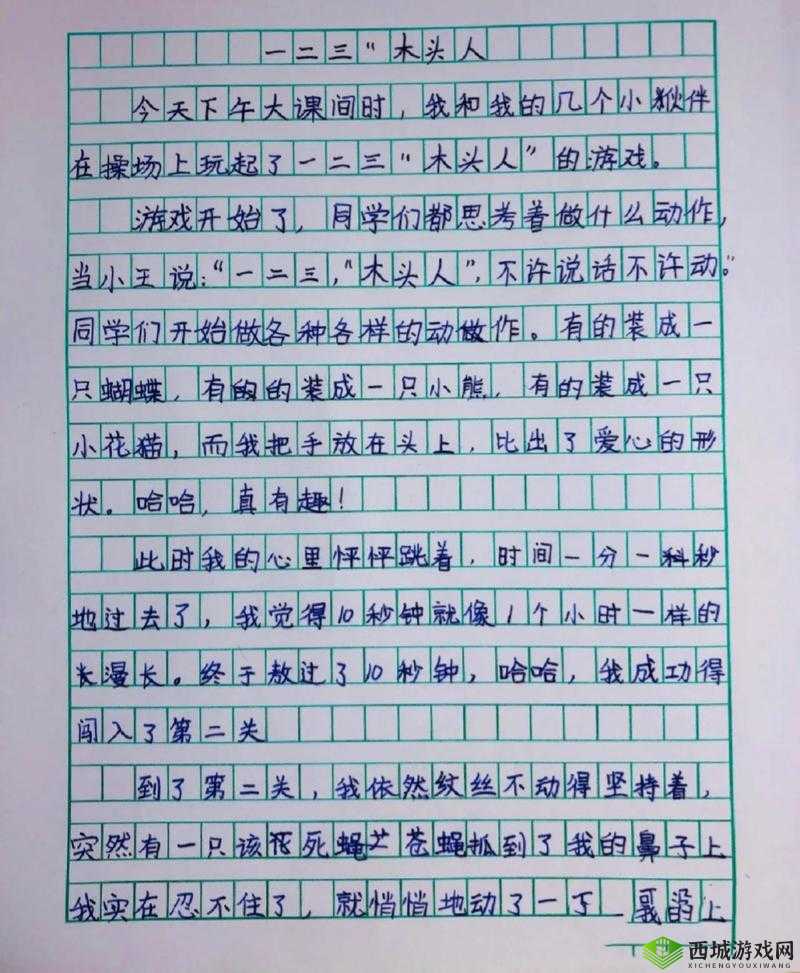 一二三“木头人
今天下午大课间时，我和我的几个小伙伴
在操场上玩起了一二三“木头人”的游戏。
游戏开始了，同学们都思考着做什么动作，
当小王说：“一二三，“木头人”，不许说话不许动。”
同学们开始做各种各样的动做作。有的装成一
只蝴蝶，有的的装成一只小熊，有的装成一只
小花猫，而我把手放在头上，比出了爱心的形
状。哈哈，真有趣！
此时我的心里怦怦跳着，时间一分一秒
地过去了，我觉得10秒钟就像1个小时一样的
长漫长。终于熬过了10秒钟，哈哈，我成功得
闯入了第二关
到了第二关，我依然纹丝不动得坚持着，
突然有一只该死蝇苍蝇抓到了我的鼻子上
我实在忍不住了，就悄悄地动了一下 上
西城游戏网
XICHENGYOUXIWANG